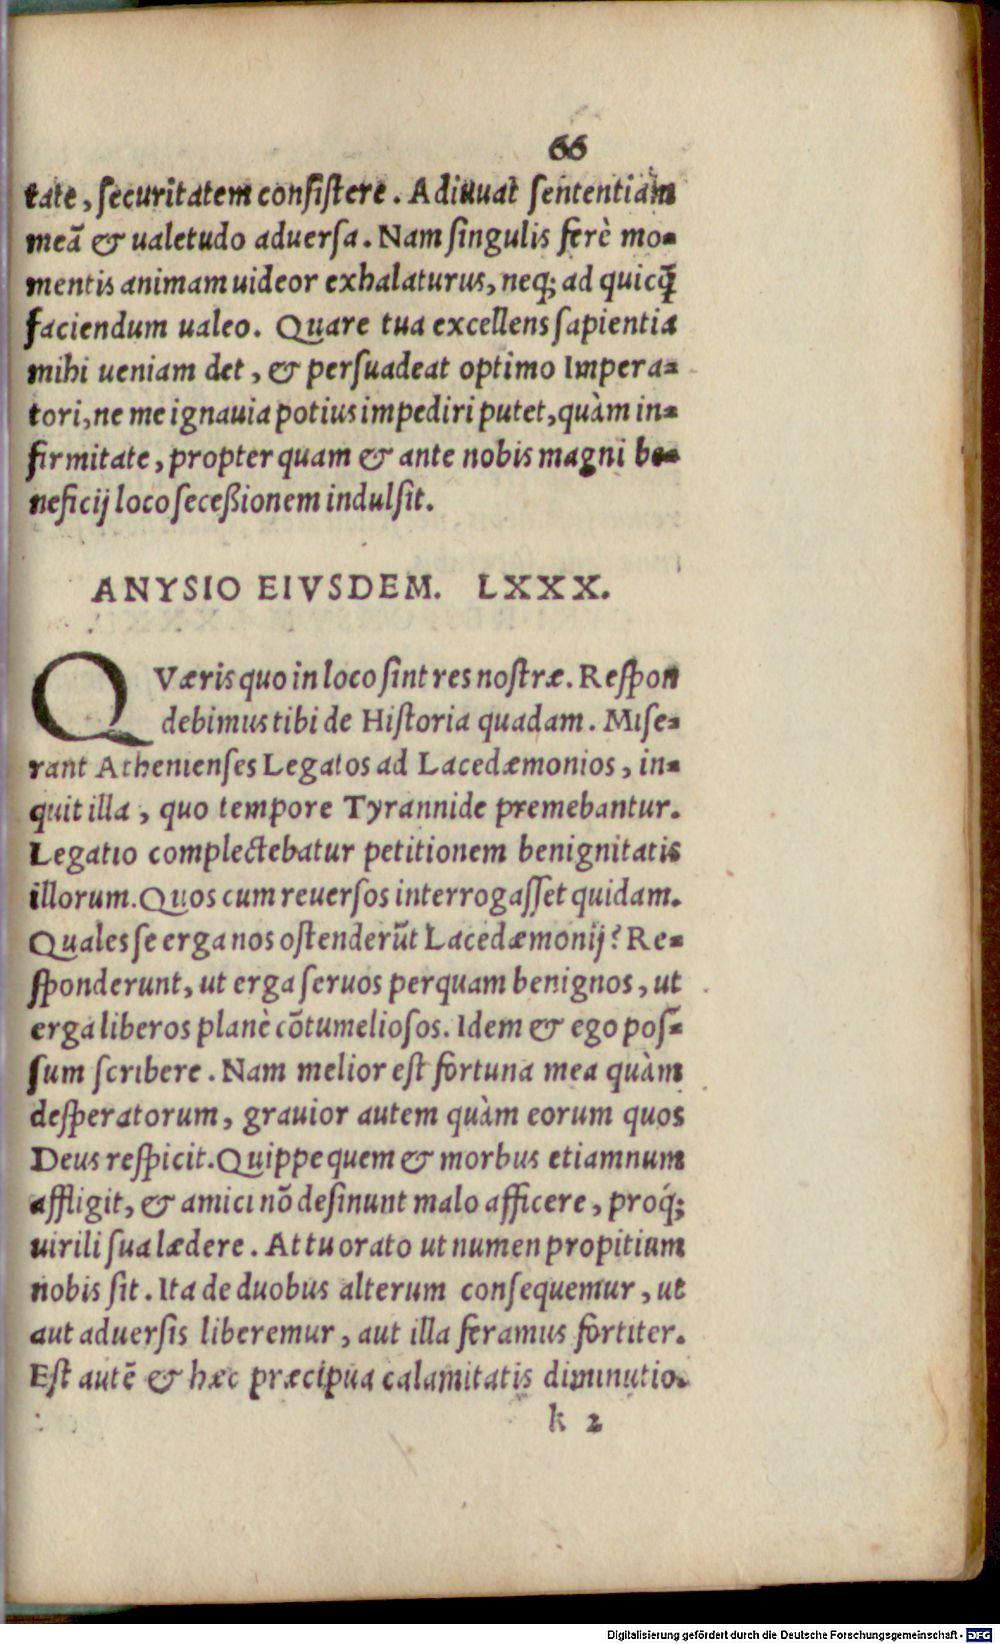 66
tate, ſecuritatem conſiſtere. Adiuuat ſententiam
meā & ualetudo aduerſa. Nam ſingulis ferè mo-
mentis animam uideor exhalaturus, neq; ad quicq̃
faciendum ualeo. Quare tua excellens ſapientia
mihi ueniam det, & perſuadeat optimo Impera-
tori, ne me ignauia potius impediri putet, quàm in-
firmitate, propter quam & ante nobis magni be-
neficij loco ſeceßionem indulſit.
ANYSIO EIVSDEM. LXXX.
QVæris quo in loco ſint res noſtræ. Reſpon
debimus tibi de Hiſtoria quadam. Miſe-
rant Athenienſes Legatos ad Lacedæmonios, in-
quit illa, quo tempore Tyrannide premebantur.
Legatio complectebatur petitionem benignitatis
illorum. Quos cum reuerſos interrogaſſet quidam.
Quales ſe erga nos oſtenderũt Lacedæmonij? Re-
ſponderunt, ut erga ſeruos perquam benignos, ut
erga liberos planè cōtumelioſos. Idem & ego poſ-
ſum ſcribere. Nam melior eſt fortuna mea quàm
deſperatorum, grauior autem quàm eorum quos
Deus reſpicit. Quippe quem & morbus etiamnum
affligit, & amici nō deſinunt malo afficere, proq́;
uirili sua lædere. At tu orato ut numen propitium
nobis ſit. Ita de duobus alterum conſequemur, ut
aut aduerſis liberemur, aut illa feramus fortiter.
Eſt autē & hæc præcipua calamitatis diminutio.
k 2
Digitalisierung gefördert durch die Deutsche Forschungsgemeinschaft - DFG